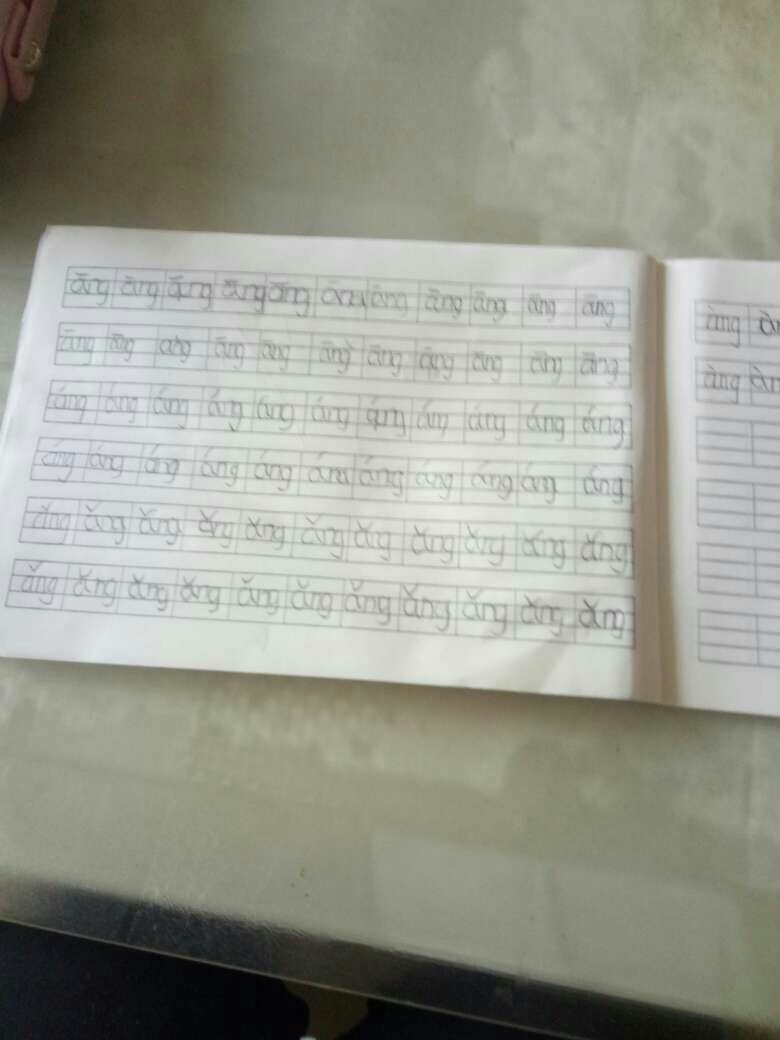 āng āng āng āng āng āng āng āng āng āng āng
āng āng āng āng āng āng āng āng āng āng āng
áng áng áng áng áng áng áng áng áng áng áng
áng áng áng áng áng áng áng áng áng áng áng
ǎng ǎng ǎng ǎng ǎng ǎng ǎng ǎng ǎng ǎng ǎng
ǎng ǎng ǎng ǎng ǎng ǎng ǎng ǎng ǎng ǎng ǎng
àng
àng